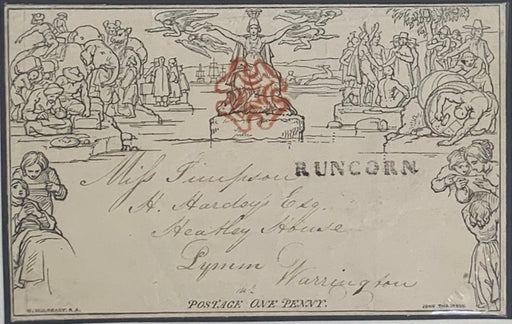 RUNCORN
Miss Timpson
H. Hardey's Esq.
Heatley House
Lymm
Warrington
POSTAGE ONE PENNY.
W. MULREADY. R.A.
JOHN THOMPSON